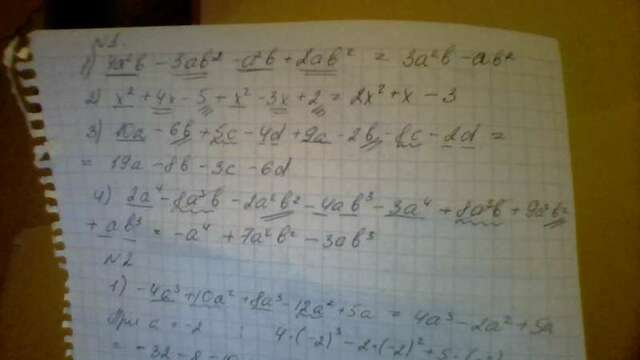 N1.
1) 4a²b - 3ab² - a²b + 2ab² = 3a²b - ab²
2) x² + 4x - 5 + x² - 3x + 2 = 2x² + x - 3
3) 10a - 6b + 5c - 4d + 9a - 2b - 8c - 2d =
= 19a - 8b - 3c - 6d
4) 2a⁴ - 8a³b - 2a²b² - 4ab³ - 3a⁴ + 8a³b + 9a²b²
+ ab³ = -a⁴ + 7a²b² - 3ab³
N2
1) -4a³ + 10a² + 8a³ - 12a² + 5a = 4a³ - 2a² + 5a
При a = -2 ; 4·(-2)³ - 2·(-2)² + 5·(-2)
= -32 - 8 - 10